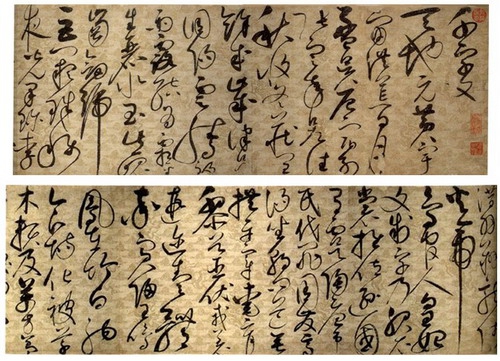 千字文
天地元黃宇
宙洪荒日月
盈昃辰宿列
張寒來暑往
秋收冬藏閏
餘成歲律呂
調陽雲騰致
雨露結為霜金
生麗水玉出崑
岡劍號
巨闕珠稱
夜光菓珍李
潛羽翔龍師
火帝
鳥官人皇始制
文字乃服衣
裳推位遜國
有虞陶唐弔
民伐罪周發商
湯坐朝問道垂
拱平章愛育
黎首臣伏戎羌
遐邇壹體
率賓歸王鳴
鳳在竹白駒
食場化被草
木賴及萬方蓋